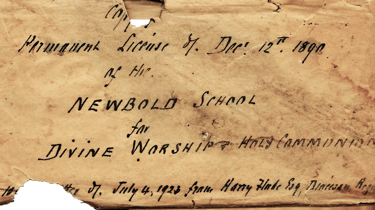 Copy of
Permanent License of Decr 12th 1890
of the
NEWBOLD SCHOOL
for
DIVINE WORSHIP & HOLY COMMUNION
of July 4, 1923 from Harry Esq,